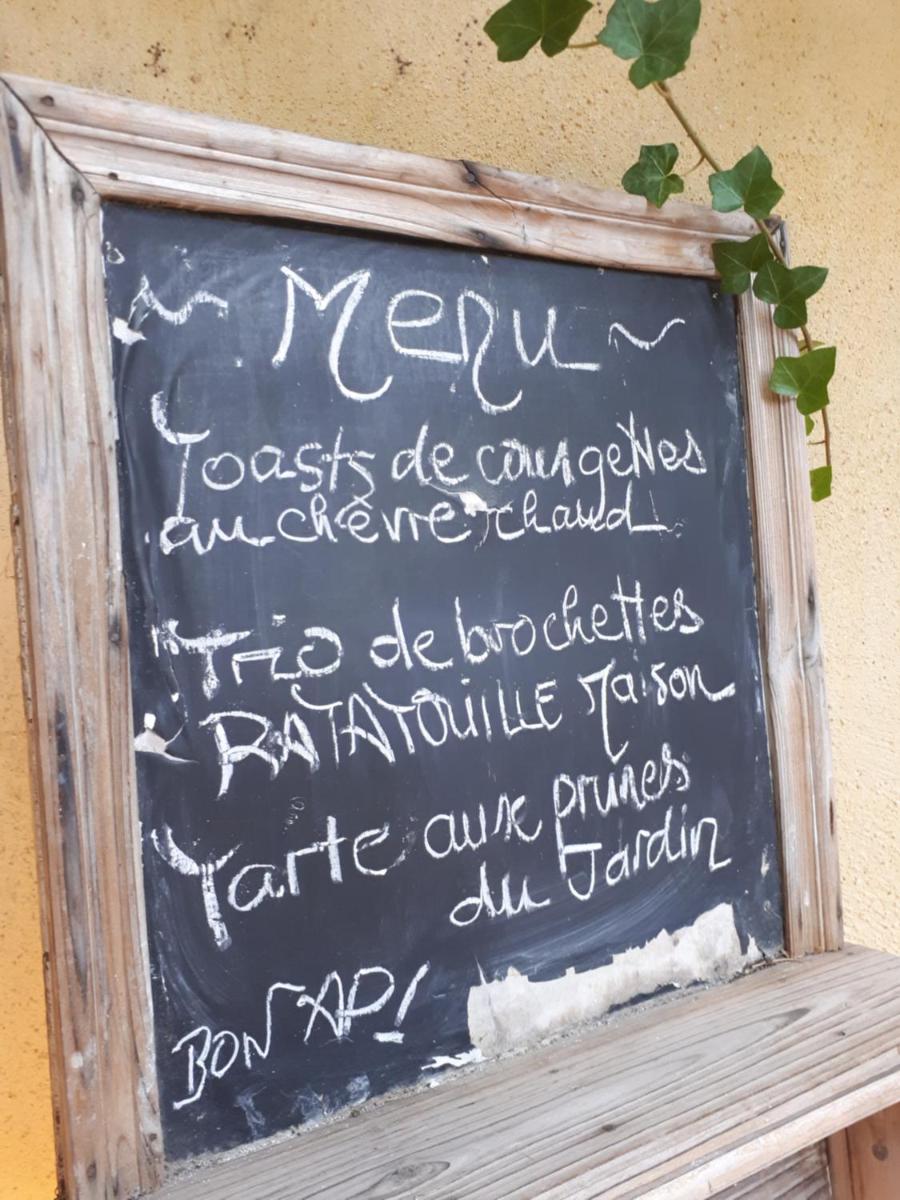 ~ Menu ~
Toasts de courgettes
au chèvre chaud.
Trio de brochettes
RATATOUILLE Maison
Tarte aux prunes
du Jardin
BON AP!